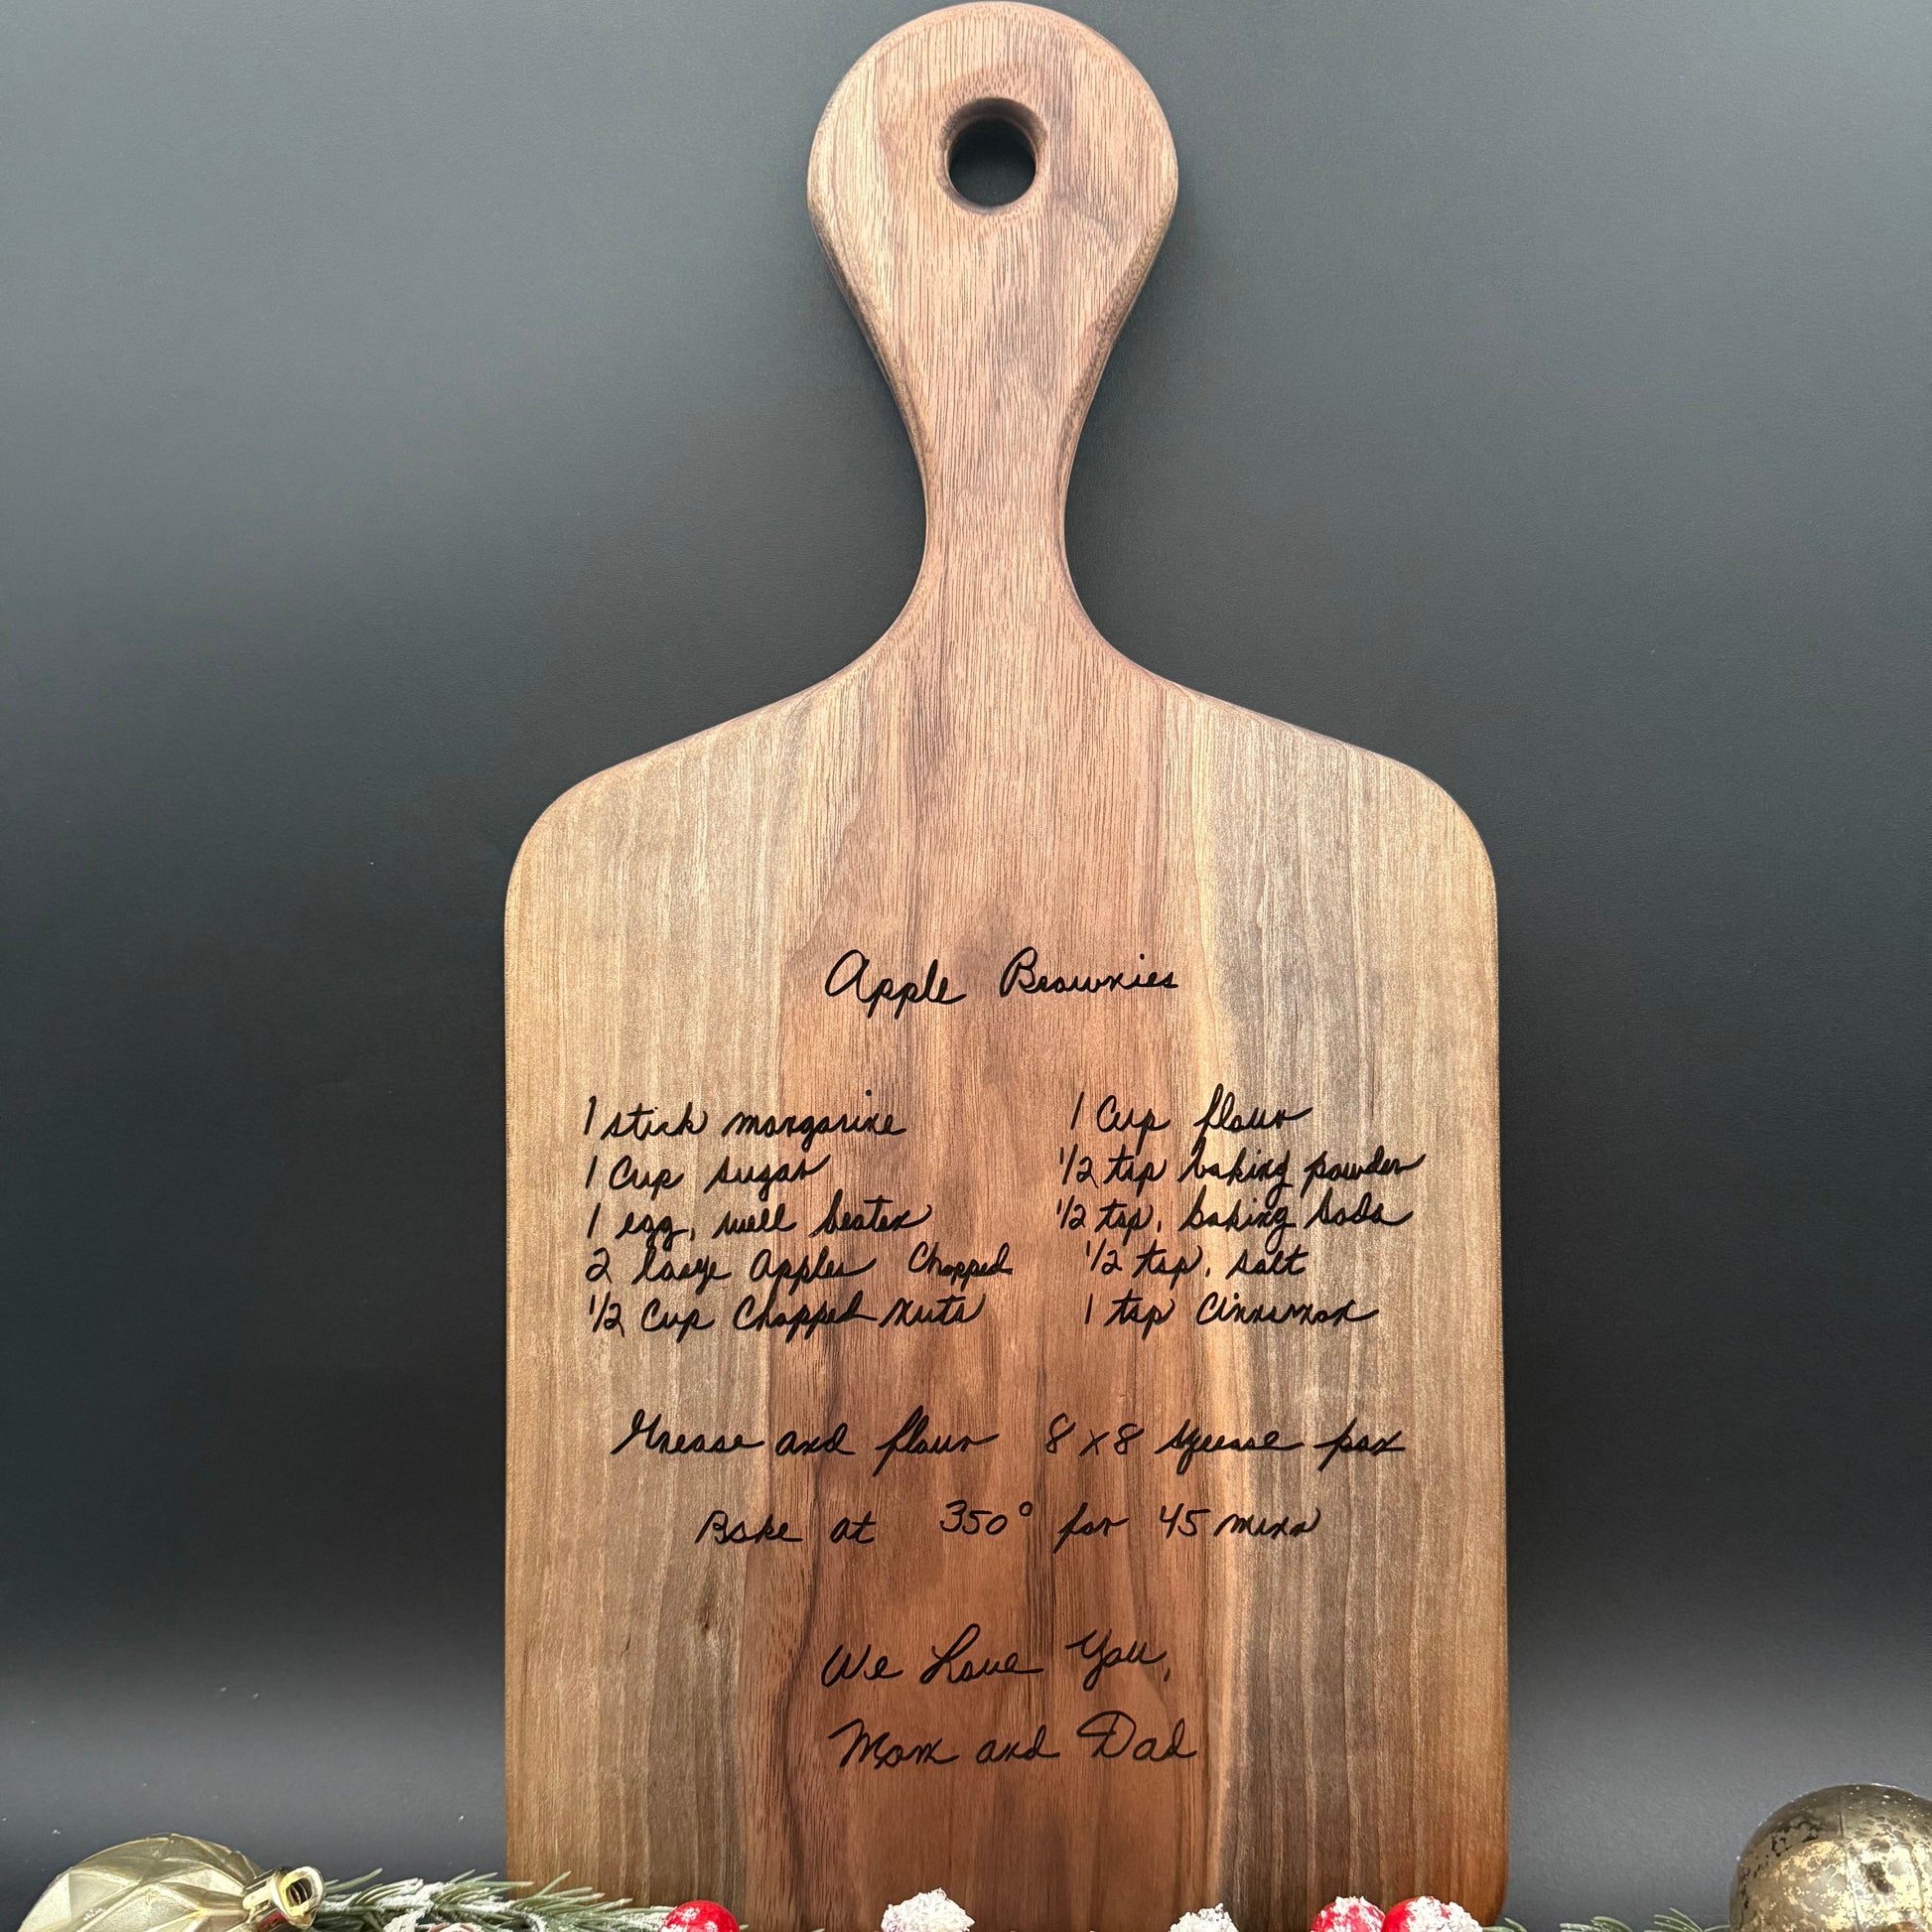 Apple Brownies
1 stick margarine
1 Cup sugar
1 egg, well beaten
2 large Apples Chopped
1/2 Cup Chopped nuts
1 Cup flour
1/2 tsp baking powder
1/2 tsp. baking soda
1/2 tsp. salt
1 tsp Cinnamon
Grease and flour 8x8 square pan
Bake at 350° for 45 mins
We Love You,
Mom and Dad